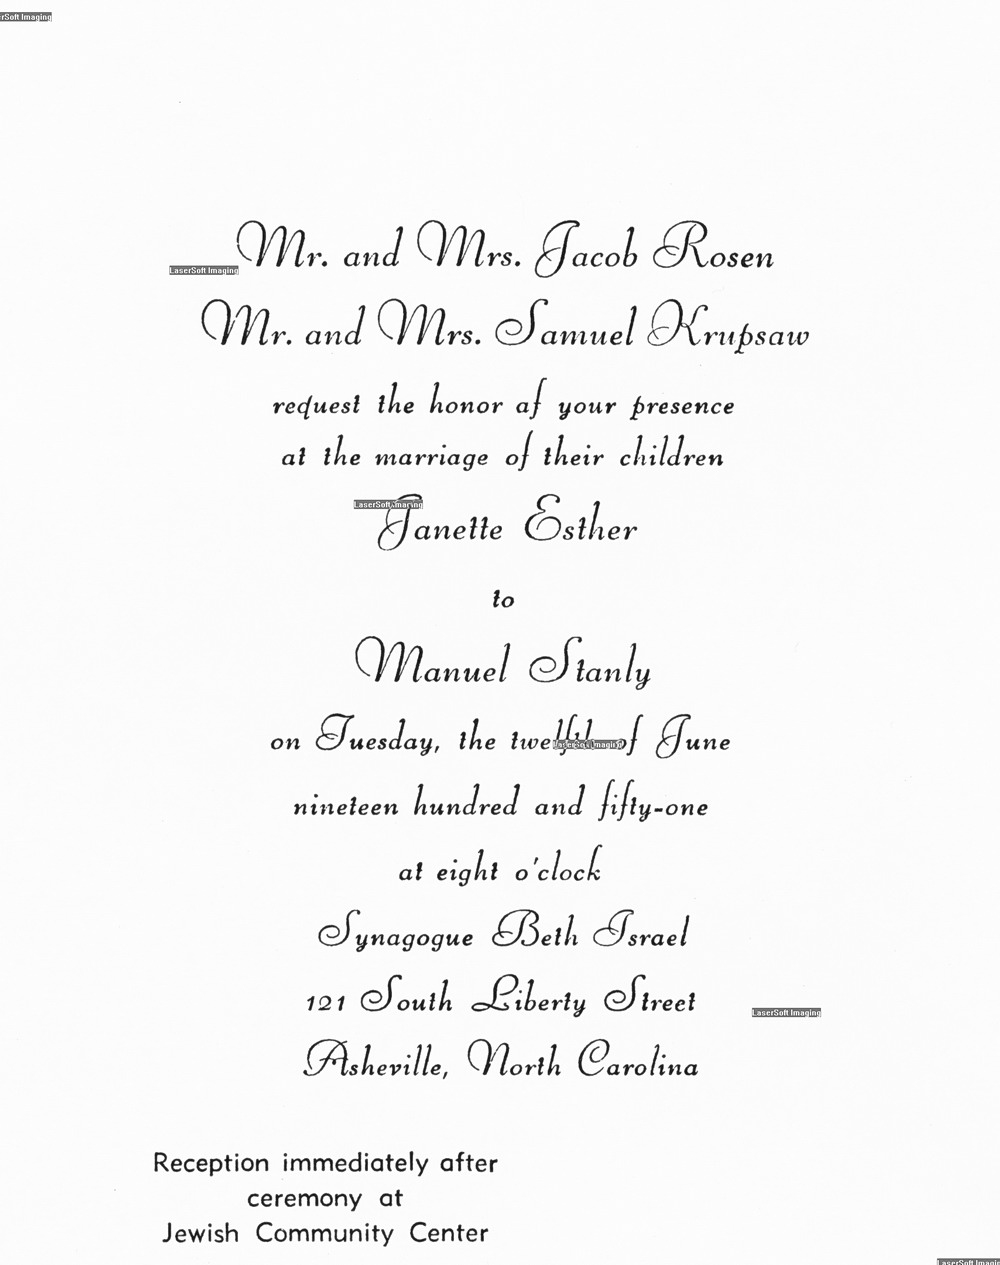 LaserSoft Imaging
Mr. and Mrs. Jacob Rosen
LaserSoft Imaging
Mr. and Mrs. Samuel Krupsaw
request the honor af your presence
at the marriage of their children
LaserSoft Imaging
Janette Esther
to
Manuel Stanly
on Tuesday, the twelfth of June
LaserSoft Imaging
nineteen hundred and fifty-one
at eight o'clock
Synagogue Beth Israel
121 South Liberty Street
LaserSoft Imaging
Asheville, North Carolina
Reception immediately after
ceremony at
Jewish Community Center
LaserSoft Imaging